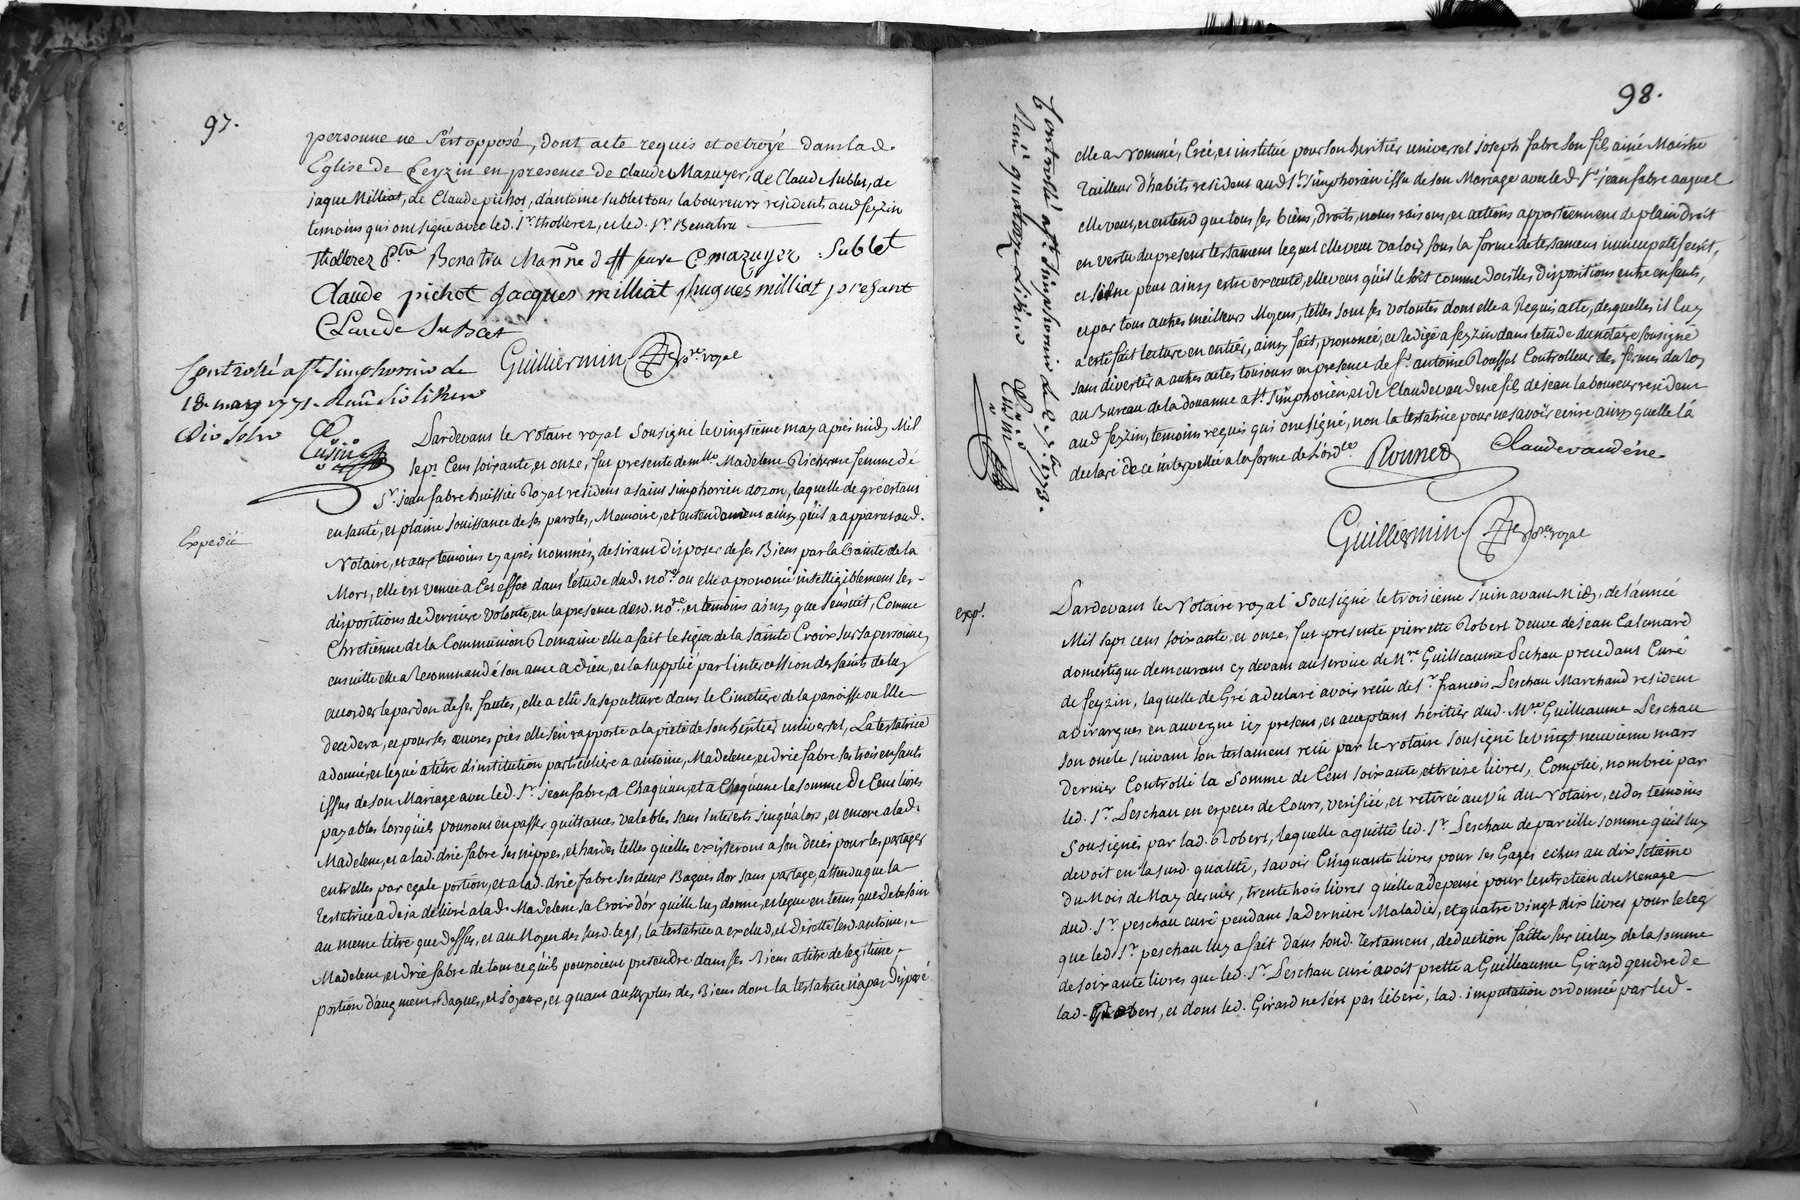 97.
personne ne s'est opposé, dont acte requis et octroyé dans lad.
Eglise de feyzin en presence de claude Mazuyer, de Claude Sublet, de
jaque Milliat, de Claude pichot, d'antoine sublet tous laboureurs residents aud feyzin
temoins qui ont signé avec led. Sr. thollerez, et led. Sr. Benatru
thollerez Benatru C mazuyer Sublet
Claude pichot Jacques milliat hugues milliat presant
Claude Subet
Guilliermin Nore royal
Controllé a st. Simphorien le
18. mars 1771. Reçu
Pardevant le Notaire royal Sousigné le vingtieme may apres midy Mil
sept cens soixante, et onze, fut presente demlle. Madelene Richerme femme de
Sr. jean fabre huissier Royal resident a saint simphorien dozon, laquelle de gré estant
en santé, et plaine jouissance de ses paroles, Memoire, et entendement ainsy qu'il a apparu aud.
Expedié
Notaire, et aux temoins cy apres nommés, desirant disposer de ses Biens par la Crainte de la
Mort, elle est venue a Cet effet dans l'etude dud. nore. ou elle a prononcé intelligiblement ses
dispositions de derniere volonté, en la presence dud. nore., et temoins ainsy que s'ensuit, Comme
Chretienne de la Communion Romaine elle a fait le signe de la sainte Croix sur sa personne,
ensuitte elle a Recommandé son ame a dieu, et la supplié par l'intercession des saints de luy
accorder le pardon de ses fautes, elle a elû sa sepulture dans le Cimetiere de la paroisse ou elle
decedera, et pour les œuvres pies elle s'en rapporte a la pieté de son heritier universel, La testatrice
a donné, et legué a titre d'institution particuliere a antoine, Madelene, et drie fabre ses trois enfants
issus de son Mariage avec led. Sr. jean fabre, a Chaquun, et a Chaqune la somme de Cent livres
payables lorsqu'ils pourront en passer quittances valables sans interests jusqu'alors, et encore a lad.
Madelene, et a lad. drie fabre ses nippes, et hardes telles quelles existeront a son deces pour les partager
entr'elles par egale portion, et a lad. drie fabre ses deux Bagues d'or sans partage, attendu que la
Testatrice a deja delivré a lad. Madelene sa Croix d'or qu'elle luy donne, et legue en tems que de besoin
au meme titre que dessus, et au Moyen des susd. legs, la testatrice a exclud, et dejette lesd. antoine,
Madelene, et drie fabre de tout ce qu'ils pourroient pretendre dans ses Biens a titre de legitime,
portion d'augment, Bagues, et Joyaux, et quant au surplus des Biens dont la testatrice n'a pas disposé
98.
Controllé a st. Simphorien le
Reçu quatorze
elle a nommé, Créé, et institué pour son heritier universel joseph fabre son fils ainé Maistre
Tailleur d'habits resident aud St. Simphorien issu de son Mariage avec led Sr. jean fabre auquel
elle veut, et entend que tous ses biens, droits, noms raisons, et actions appartiennent de plain droit
en vertu du present testament lequel elle veut valoir sous la forme de testament nuncupatif ecrit,
et s'il ne peut ainsy estre executé, elle veut qu'il le soit comme Codicille, Disposition entre enfants,
et par tous autres meilleurs Moyens, telles sont ses volontés dont elle a Requis acte, desquelles il luy
a esté fait lecture en entier, ainsy fait, prononcé, et redigé a feyzin dans l'etude du notaire sousigné
sans divertir a autres actes tousjours en presence de Sr. antoine Rousset Controlleur des fermes du Roy
au Bureau de la douanne a St. Simphorien, et de Claude vaudene fils de jean laboureur resident
aud feyzin, temoins requis qui ont signé, non la testatrice pour ne savoir ecrire ainsy quelle l'a
declaré de ce interpellée a la forme de l'ordce.
Claude vaudéne
Guilliermin Nore royal
exp.
Pardevant le Notaire royal Sousigné le troisieme juin avant Midy de l'année
Mil sept cens soixante, et onze, fut presente pierrette Robert veuve de Jean Casenard
domestique demeurant cy devant au service de Mre. Guilleaume Peschau precedant Curé
de feyzin, laquelle de Gré a declaré avoir reçu de Sr. francois Peschau Marchand resident
a Virargues en auvergne icy present, et acceptant heritier dud. Mre. Guilleaume Peschau
son oncle suivant son testament reçu par le notaire sousigné le vingt neuvieme mars
dernier Controllé la Somme de Cent soixante, et treize livres, Comptée, nombrée par
led. Sr. Peschau en especes de Cours, verifiée, et retirée au vû du Notaire, et des temoins
sousignés par lad. Robert, laquelle a quitté led. Sr. Peschau de pareille somme qu'il luy
devoit en la susd. qualité, savoir Cinquante livres pour ses Gages echus au dix setieme
du Mois de May dernier, trente trois livres qu'elle a depensé pour l'entretien du Menage
dud. Sr. peschau curé pendant sa derniere Maladie, et quatre vingt dix livres pour le leg
que led. Sr. peschau luy a fait dans sond. testament, deduction faitte sur iceluy de la somme
de soixante livres que led. Sr. Peschau curé avoit pretté a Guilleaume Girard gendre de
lad. Robert, et dont led. Girard ne s'est pas liberé, lad. imputation ordonnée par led.